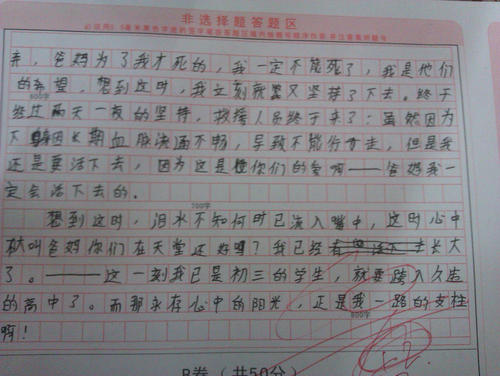 非选择题答题区
弃，爸妈为了我才死的，我一定不能死了，我是他们
的希望，想到这时，我立刻就又坚持了下去。终于
600字
经过两天一夜的坚持，救援人员终于来了；虽然因为
下长期血脉流通不畅，导致不能行走，但是我
还是要活下去，因为这是你们的爱啊——爸妈我一
定会活下去的。
700字
想到这时，泪水不知何时已流入嘴中，这时心中
叫爸妈你们在天堂还好吗？我已经长大
了。——这一刻我已是初三的学生，就要跨入久违
的高中了。而那永存心中的阳光，正是我一路的支柱
800字
啊！
B卷（共50分）